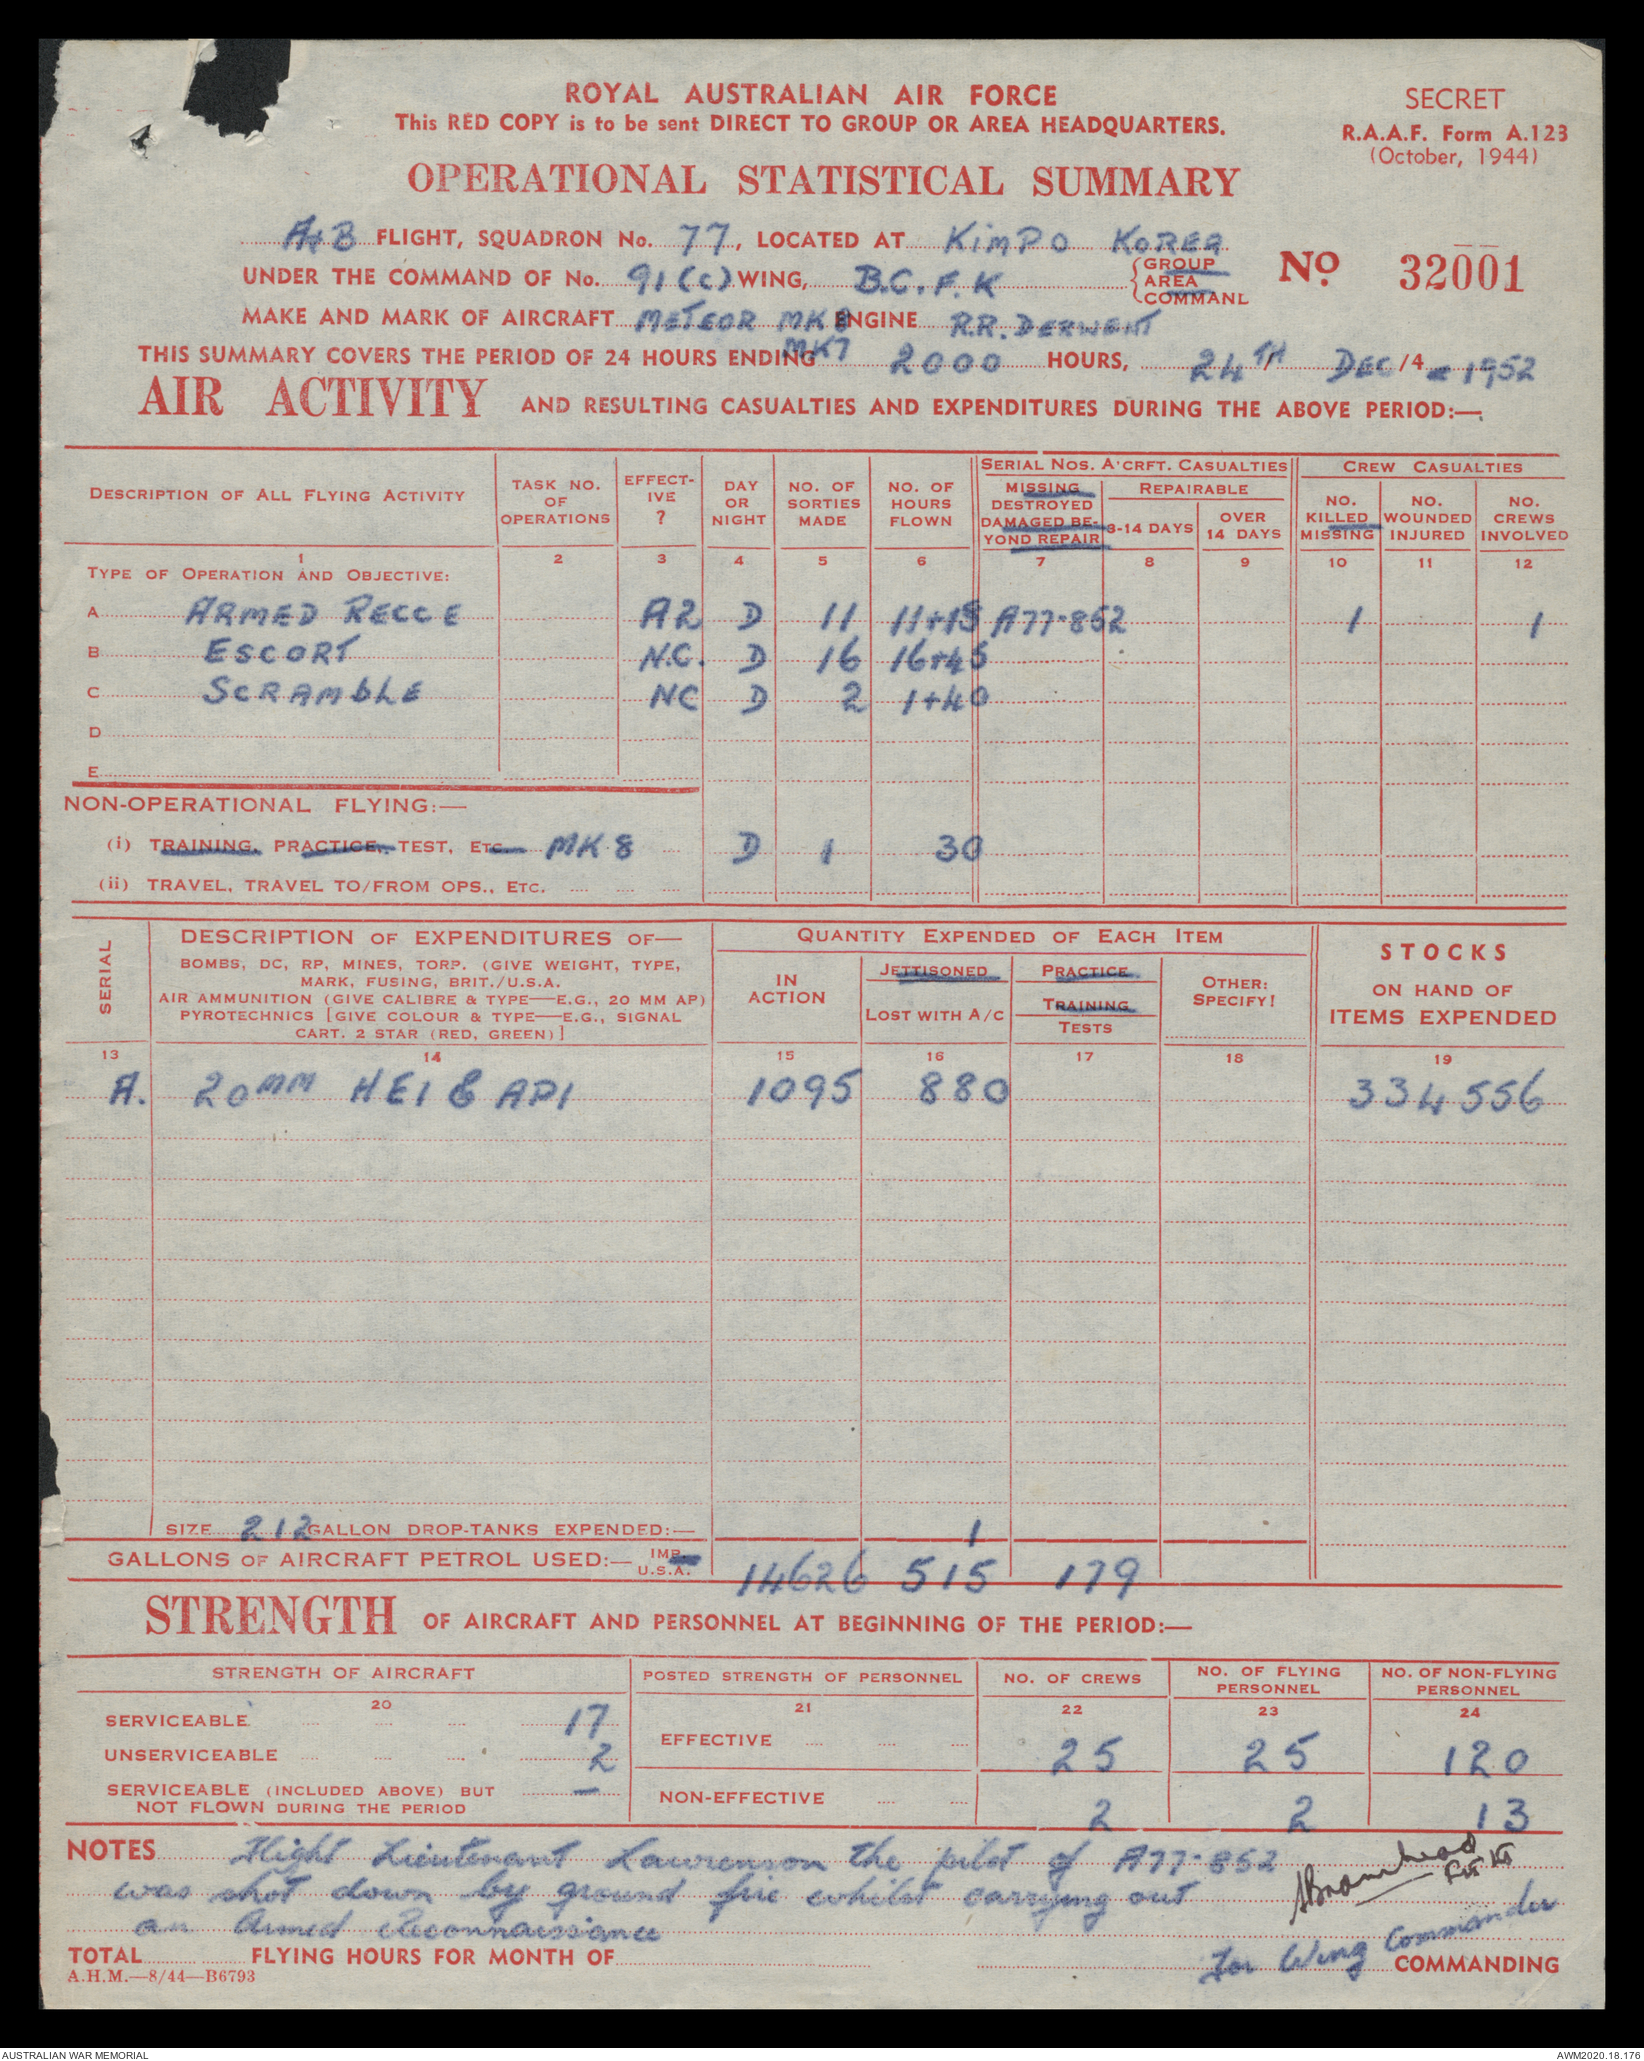 ROYAL AUSTRALIAN AIR FORCE
This RED COPY is to be sent DIRECT TO GROUP OR AREA HEADQUARTERS.
SECRET
R.A.A.F. Form A.123
(October, 1944)
OPERATIONAL STATISTICAL SUMMARY
A+B FLIGHT, SQUADRON No. 77, LOCATED AT KIMPO KOREA
UNDER THE COMMAND OF No. 91(c) WING, B.C.F.K GROUP AREA COMMAND
No 32001
MAKE AND MARK OF AIRCRAFT METEOR MK 8 ENGINE R.R. DERWENT MK7
THIS SUMMARY COVERS THE PERIOD OF 24 HOURS ENDING 2000 HOURS, 24TH / DEC /4 1952
AIR ACTIVITY AND RESULTING CASUALTIES AND EXPENDITURES DURING THE ABOVE PERIOD:—
DESCRIPTION OF ALL FLYING ACTIVITY
TASK NO. OF OPERATIONS
EFFECT-IVE ?
DAY OR NIGHT
NO. OF SORTIES MADE
NO. OF HOURS FLOWN
SERIAL NOS. A'CRFT. CASUALTIES
MISSING DESTROYED DAMAGED BE-YOND REPAIR
REPAIRABLE
3-14 DAYS
OVER 14 DAYS
CREW CASUALTIES
NO. KILLED MISSING
NO. WOUNDED INJURED
NO. CREWS INVOLVED
1 2 3 4 5 6 7 8 9 10 11 12
TYPE OF OPERATION AND OBJECTIVE:
A ARMED RECCE A2 D 11 11+15 A77-852 1 1
B ESCORT N.C. D 16 16+45
C SCRAMBLE NC D 2 1+40
D
E
NON-OPERATIONAL FLYING:—
(i) TRAINING, PRACTICE, TEST, ETC. MK 8 D 1 30
(ii) TRAVEL, TRAVEL TO/FROM OPS., ETC.
SERIAL
DESCRIPTION OF EXPENDITURES OF—
BOMBS, DC, RP, MINES, TORP. (GIVE WEIGHT, TYPE,
MARK, FUSING, BRIT./U.S.A.
AIR AMMUNITION (GIVE CALIBRE & TYPE—E.G., 20 MM AP)
PYROTECHNICS [GIVE COLOUR & TYPE—E.G., SIGNAL
CART. 2 STAR (RED, GREEN)]
QUANTITY EXPENDED OF EACH ITEM
IN ACTION
JETTISONED
LOST WITH A/C
PRACTICE
TRAINING
TESTS
OTHER: SPECIFY!
STOCKS
ON HAND OF
ITEMS EXPENDED
13 14 15 16 17 18 19
A. 20MM HEI & API 1095 880 334556
SIZE 212 GALLON DROP-TANKS EXPENDED:— 1
GALLONS OF AIRCRAFT PETROL USED:— IMP. U.S.A. 14626 515 179
STRENGTH OF AIRCRAFT AND PERSONNEL AT BEGINNING OF THE PERIOD:—
STRENGTH OF AIRCRAFT
POSTED STRENGTH OF PERSONNEL
NO. OF CREWS
NO. OF FLYING PERSONNEL
NO. OF NON-FLYING PERSONNEL
20 21 22 23 24
SERVICEABLE 17
UNSERVICEABLE 2
SERVICEABLE (INCLUDED ABOVE) BUT NOT FLOWN DURING THE PERIOD —
EFFECTIVE 25 25 120
NON-EFFECTIVE 2 2 13
NOTES Flight Lieutenant Lawrenson the pilot of A77-852
was shot down by ground fire whilst carrying out
an Armed Reconnaissance
Bramhead Flt Lt
for Wing Commander
TOTAL FLYING HOURS FOR MONTH OF COMMANDING
A.H.M.—8/44—B6793
AUSTRALIAN WAR MEMORIAL
AWM2020.18.176